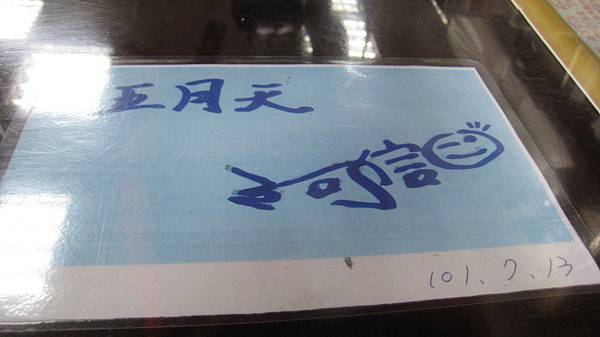 五月天
阿信
101.7.13